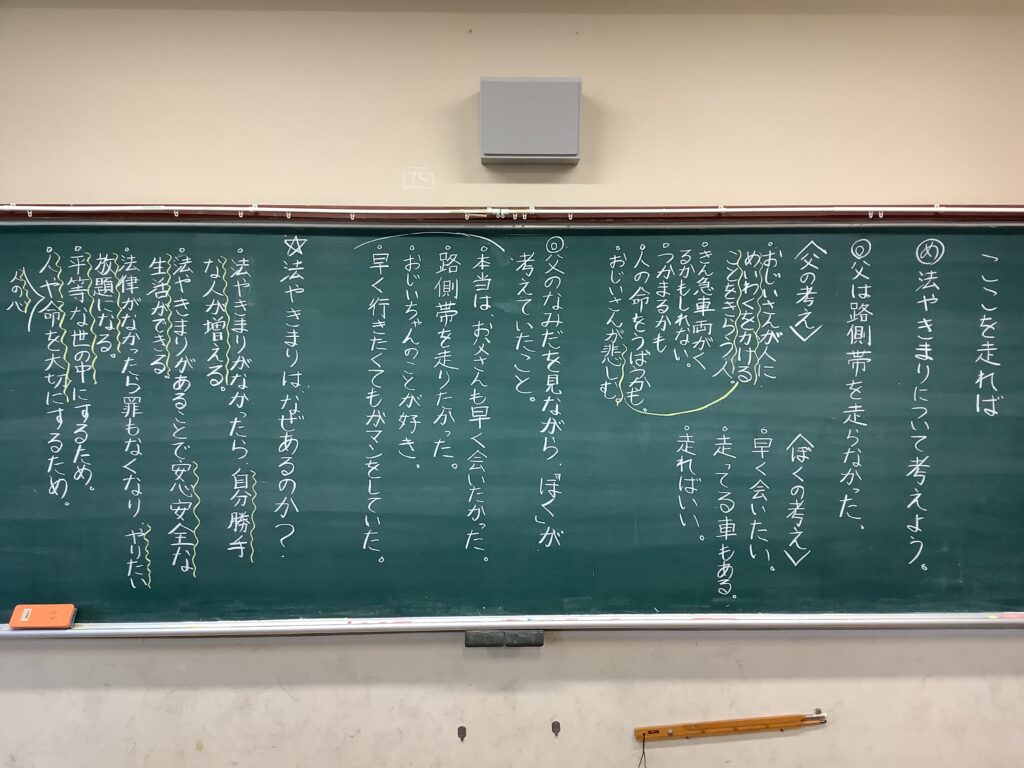 ここを走れば
め 法やきまりについて考えよう。
◎父は路側帯を走らなかった。
〈父の考え〉
・おじいさんが人に
めいわくをかける
ことをきらう人
・きん急車両がく
るかもしれない。
・つかまるかも
・人の命をうばうかも。
・おじいさんが悲しむ。
〈ぼくの考え〉
・早く会いたい。
・走ってる車もある。
・走ればいい。
◎父のなみだを見ながら、「ぼく」が
考えていたこと。
・本当は、お父さんも早く会いたかった。
路側帯を走りたかった。
・おじいちゃんのことが好き。
・早く行きたくてもガマンをしていた。
☆法やきまりは、なぜあるのか?
・法やきまりがなかったら、自分勝手
な人が増える。
・法やきまりがあることで安心安全な
生活ができる。
・法律がなかったら罪もなくなり やりたい
放題になる。
・平等な世の中にするため。
・人や命を大切にするため。